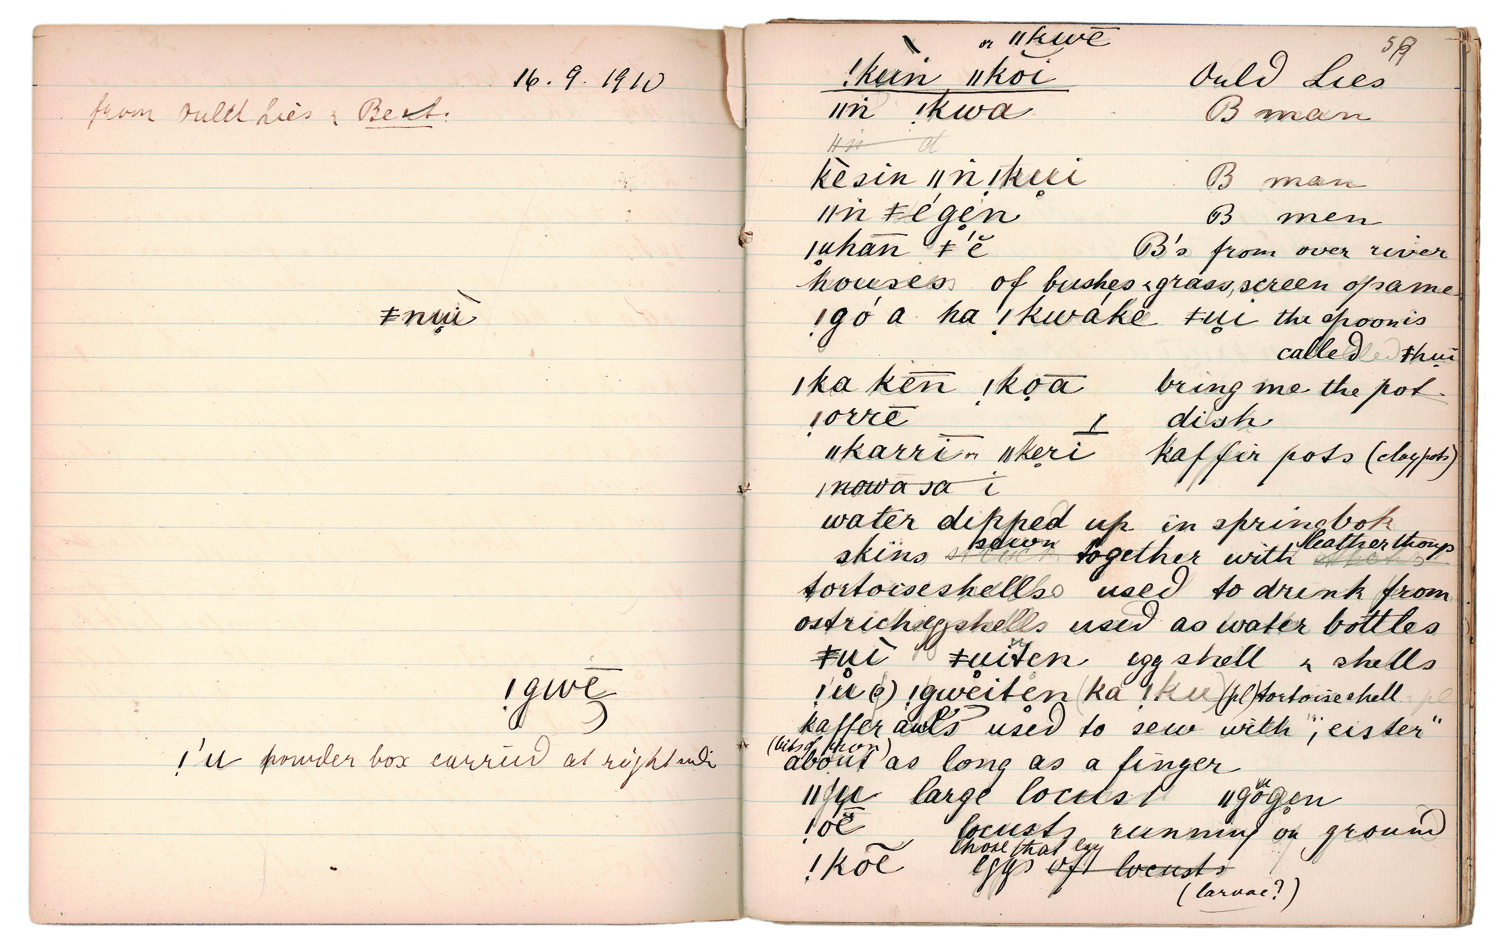 16. 9. 1910
from Ould Lies & Bert.
ǂnṵì
!gwē
!'u powder box carried at right side
59
or ǁkwē
!kuin ǁkōi Ould Lies
ǁṅ !kwa B man
kèsin ǁṅ !kụi B man
ǁṅ ǂégen B men
ǀuhān ǂ'ĕ B's from over river
houses of bushes & grass, screen of same
!gó a ha !kwáke ǂụi the spoon is
called ǂhụi
ǀka kēn !kọā bring me the pot
!orrē dish
ǁkarrī or ǁkẹrī kaffir pots (clay pots)
ǀnowa sa i
water dipped up in springbok
skins sewn together with leather thongs
tortoiseshells used to drink from
ostrich eggshells used as water bottles
ǂụì ǂuiten egg shell & shells
!ů !gwēiten (ka !ku) (pl) tortoiseshell pl
kaffer awls used to sew with "eister"
(bits of iron)
about as long as a finger
ǁgụ large locust ǁgögen
!oē locusts running on ground
!kōē eggs of locusts
those that lay
(larvae?)